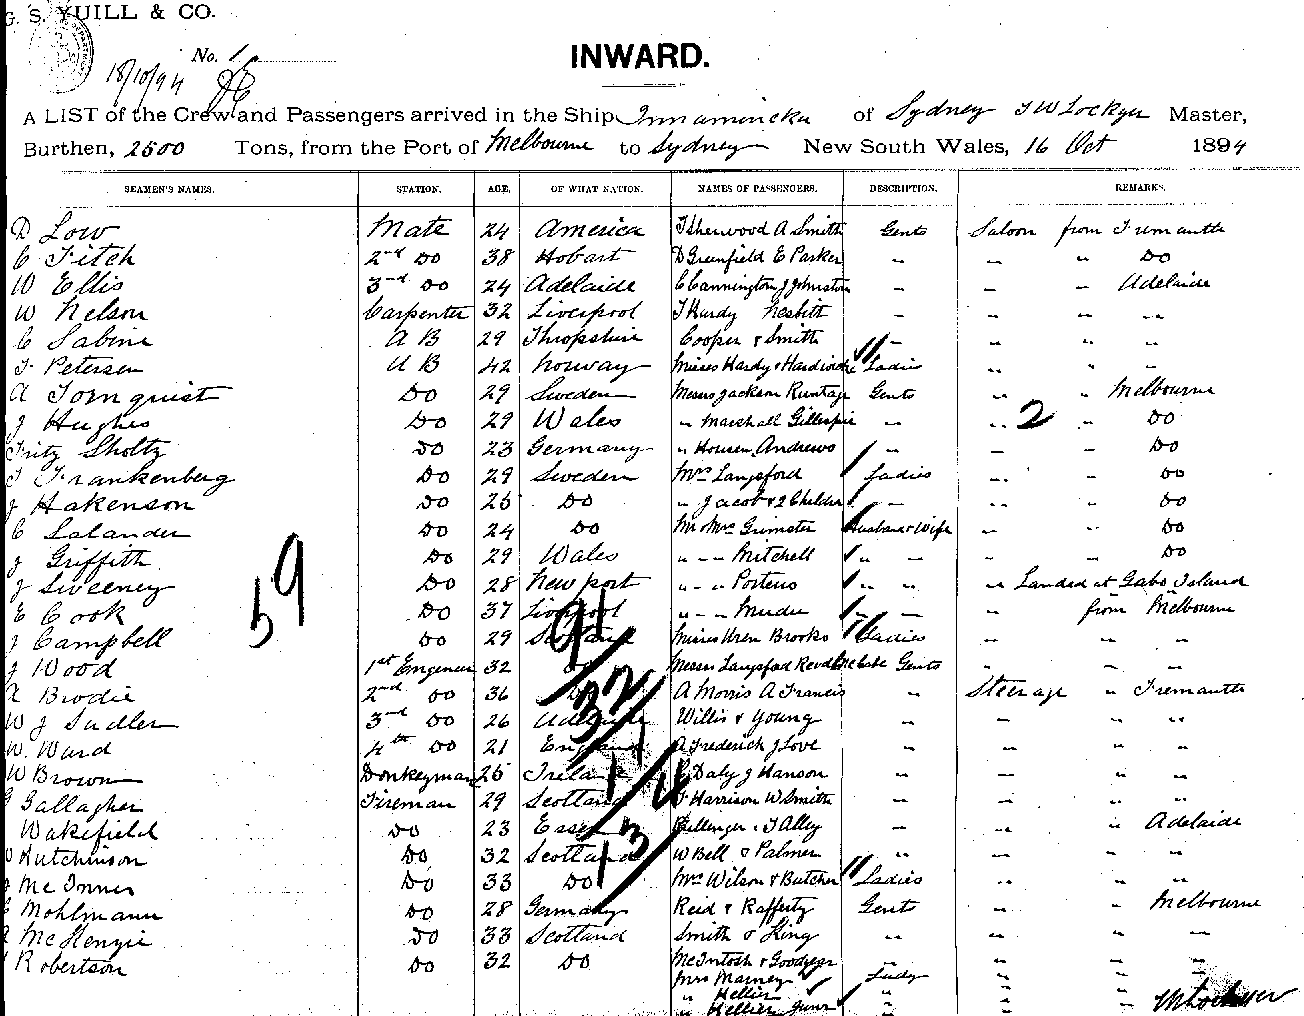 G. S. YUILL & CO.
No. 1
18/10/94
INWARD.
A LIST of the Crew and Passengers arrived in the Ship Innamincka of Sydney T W Lockyer Master,
Burthen, 2500 Tons, from the Port of Melbourne to Sydney New South Wales, 16 Oct 1894
SEAMEN'S NAMES. STATION. AGE. OF WHAT NATION. NAMES OF PASSENGERS. DESCRIPTION. REMARKS.
D Low Mate 24 America T Sherwood A Smith Gents Saloon from Fremantle
C Fitch 2nd Do 38 Hobart D Greenfield E Parker " " " Do
W Ellis 3rd Do 24 Adelaide C Cannington J Johnston " " " Adelaide
W Nelson Carpenter 32 Liverpool T Hardy Nesbitt " " " "
C Sabine A B 29 Thropshire Cooper & Smith " " " "
F Petersen A B 42 Norway Misses Hardy & Hardwicke Ladies " " "
A Tornquist Do 29 Sweden Messrs Jackson Runtage Gents " " Melbourne
J Hughes Do 29 Wales " Marshall Gillespie " " 2 " Do
Fritz Sholtz Do 23 Germany " Housen Andrews " " " Do
T Frankenberg Do 29 Sweden Mrs Langsford Ladies " " Do
J Hakenson Do 25 Do " Jacob & 2 Childer " " " Do
C Salander Do 24 Do Mr & Mrs Grimster Husband & Wife " " Do
J Griffith Do 29 Wales " " " Mitchell " " " " Do
J Sweeney Do 28 Newport " " " Porteus " " " Landed at Gabo Island
E Cook Do 37 Liverpool " " " Mudie " " " from Melbourne
J Campbell Do 29 Scotland Misses Wren Brooks Ladies " " "
J Wood 1st Engineer 32 Do Messrs Langsford Gents " " "
A Brodie 2nd Do 36 Do A Morris A Francis " Steerage " Fremantle
W J Sadler 3rd Do 26 Adelaide Willis & Young " " " "
W. Ward 4th Do 21 England A Frederick J Love " " " "
W Brown Donkeyman 25 Ireland Daly J Hanson " " " "
G Gallagher Fireman 29 Scotland T Harrison W Smith " " " "
Wakefield Do 23 Essex Bellenger & T Alley " " " Adelaide
Hutchinson Do 32 Scotland W Bell & Palmer " " " "
Mc Innes Do 33 Do Mrs Wilson & Butcher Ladies " " "
Mohlmann Do 28 Germany Reid & Rafferty Gents " " Melbourne
McKenzie Do 33 Scotland Smith & King " " " "
Robertson Do 32 Do McIntosh & Goodyear " " " "
Mrs Marney Lady " " "
" Hellier " " "
" Hellier Junr " "
59
91
32
17
4
13